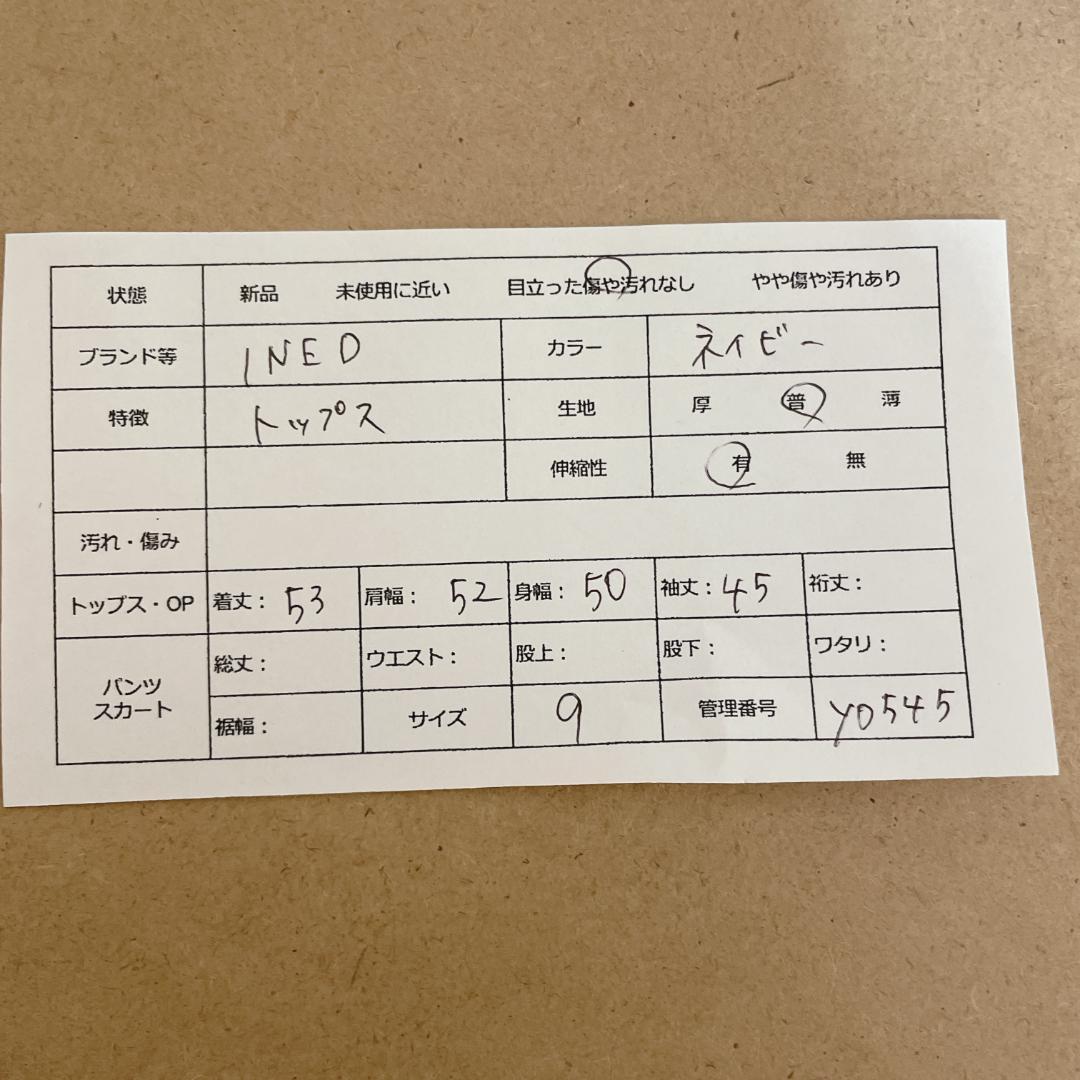 状態 新品 未使用に近い 目立った傷や汚れなし やや傷や汚れあり
ブランド等 INED カラー ネイビー
特徴 トップス 生地 厚 普 薄
伸縮性 有 無
汚れ・傷み
トップス・OP 着丈： 53 肩幅： 52 身幅： 50 袖丈： 45 裄丈：
パンツ
スカート
総丈： ウエスト： 股上： 股下： ワタリ：
裾幅： サイズ 9 管理番号 Y0545